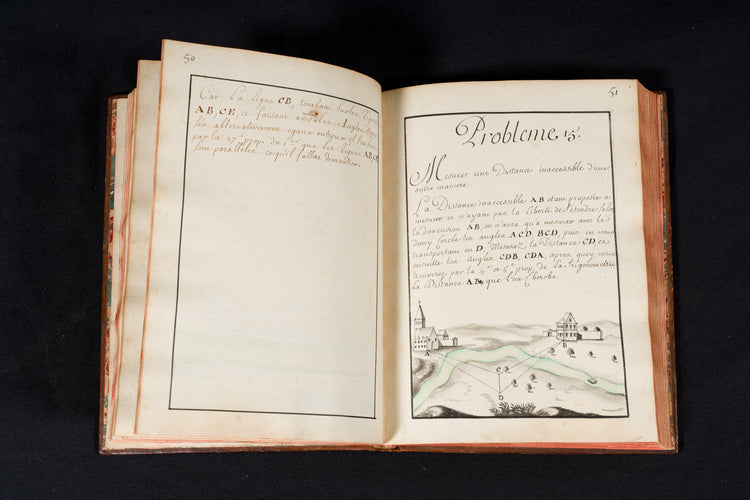 50
Car La ligne CB, tombant sur les lignes
AB, CE, et faisant avec elles les Angles
alternativement egaux entreux, il
par la 27.e prop. du 1.er que les lignes AB, CE,
sont paralleles ce qu'il falloit demontrer
51
Probleme 15.
Mesurer une Distance inaccessible d'une
autre maniere
La Distance inaccessible AB etant proposée a
mesurer et n'ayant pas la liberté de s'etendre selon
la dimension AB, on n'aura qu'a mesurer avec le
demy Cercle les angles ACD, BCD, puis en vous
transportant en D, Mesurez la Distance CD et
ensuitte les Angles CDB, CDA, apres quoy vous
trouverez par la 4.e et 5.e prop. de La Trigonometrie
La Distance AB, que l'on Cherche
A
B
C
D